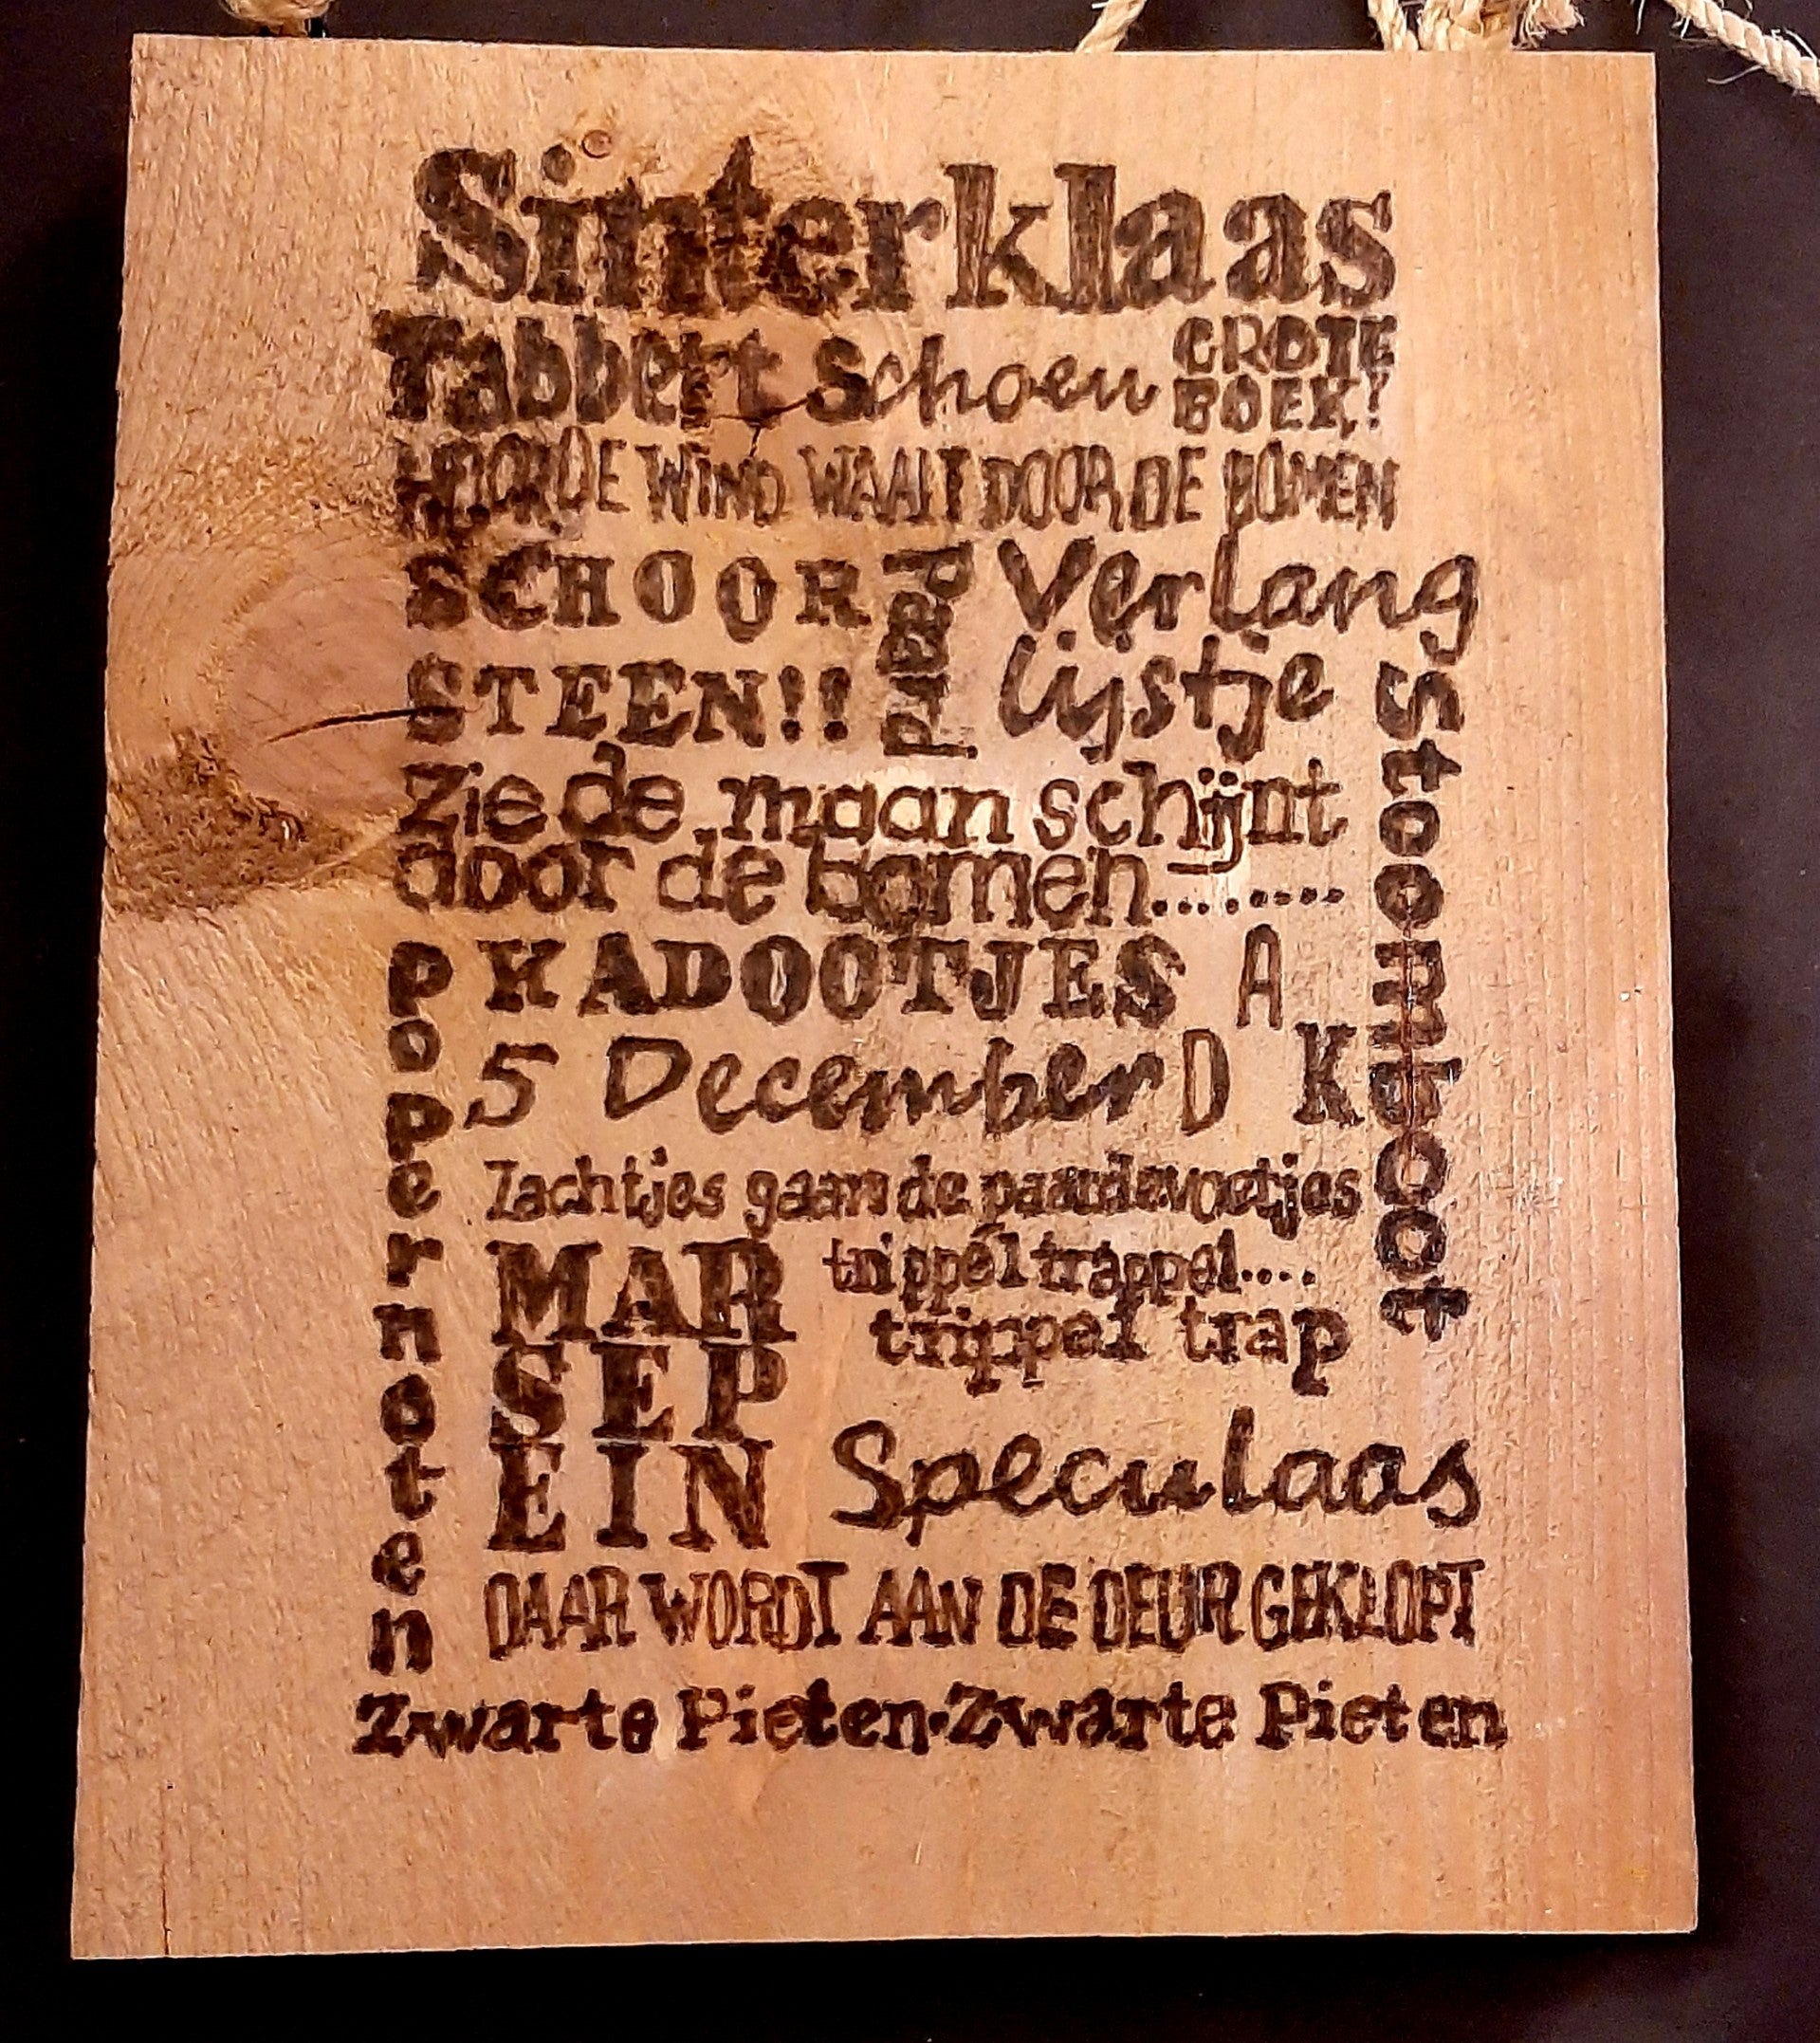 Sinterklaas
Tabbert Schoen GROTE
BOEK!
HOOR DE WIND WAAIT DOOR DE BOMEN
SCHOOR
STEEN!!
Paard
Verlang
lijstje
Stoomboot
Zie de maan schijnt
door de bomen........
Pepernoten
KADOOTJES A
5 December D K
Zachtjes gaan de paardevoetjes
trippel trappel....
trippel trap
MAR
SEP
EIN
Speculaas
DAAR WORDT AAN DE DEUR GEKLOPT
Zwarte Pieten·Zwarte Pieten